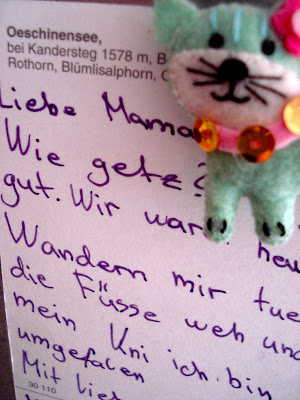 Oeschinensee,
bei Kandersteg 1578 m, B
Rothorn, Blümlisalphorn,
Liebe Mama
Wie getz?
gut. Wir war heu
Wandern mir tue
die Füsse weh und
mein Kni ich bin
umgefalen
Mit Lie
30 110